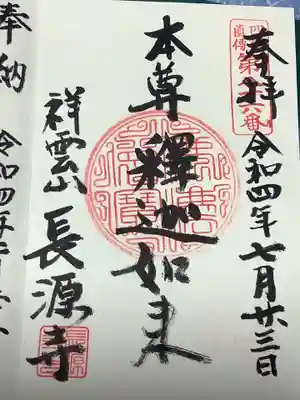 奉拝
令和四年七月廿三日
本尊釋迦如来
祥雲山
長源寺
奉納
令和四年